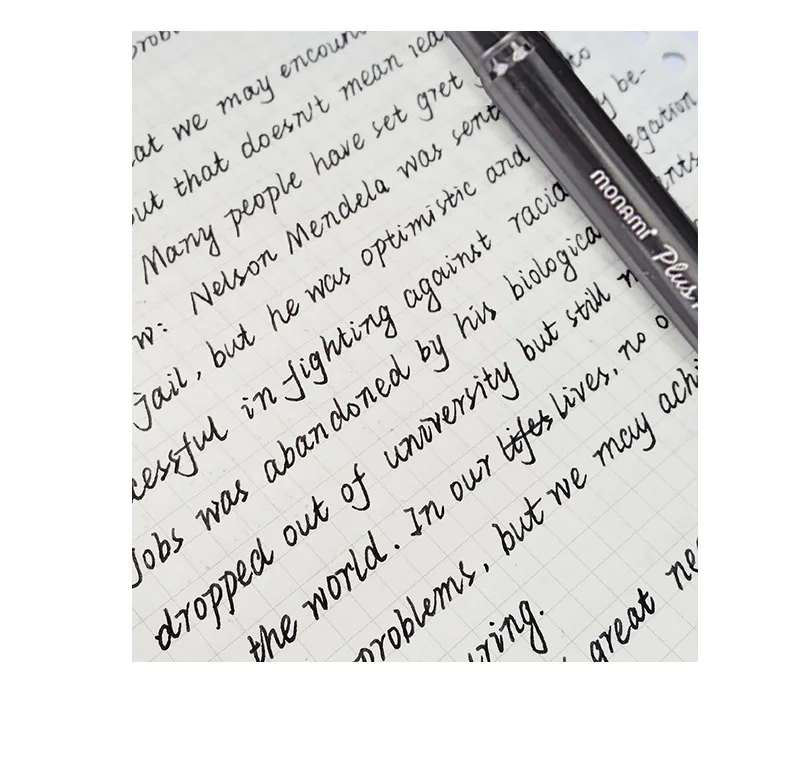 we may encoun
but that doesn't mean
Many people have set gret to
w: Nelson Mendela was sent be-
Jail, but he was optimistic and egation
cessful in fighting against racia
Jobs was abandoned by his biologica
dropped out of university but still
the world. In our lifes lives, no
problems, but we may achi
uring.
great ne
monami Plus